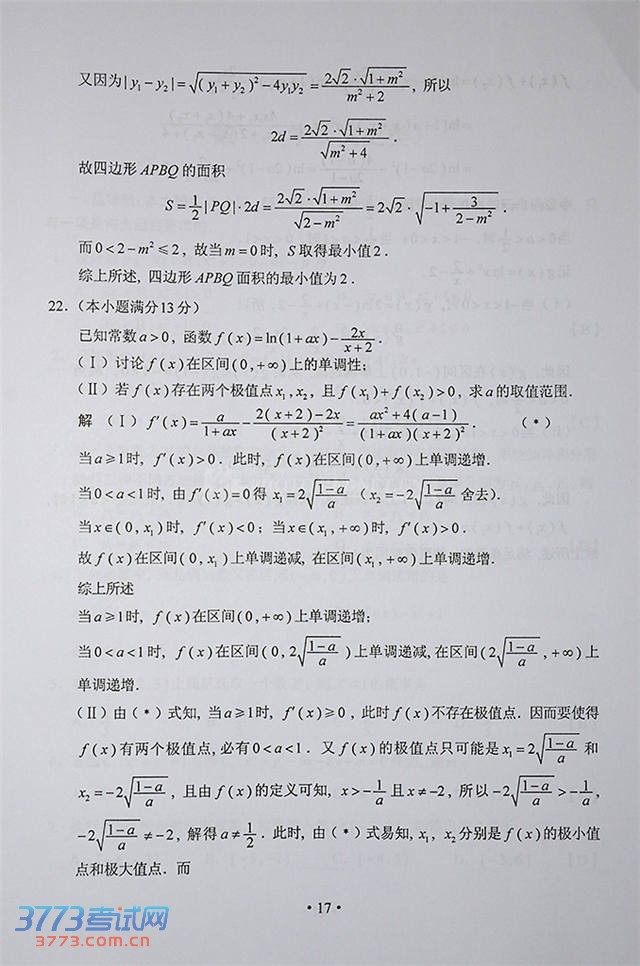 又因为|y₁−y₂|=√((y₁+y₂)²−4y₁y₂)=(2√2·√(1+m²))/(m²+2), 所以
2d=(2√2·√(1+m²))/√(m²+4).
故四边形 APBQ 的面积
S=1/2|PQ|·2d=(2√2·√(1+m²))/√(2−m²)=2√2·√(−1+3/(2−m²)).
而0<2−m²≤2, 故当m=0时, S取得最小值2.
综上所述, 四边形APBQ 面积的最小值为2.
22.(本小题满分13分)
已知常数a>0, 函数f(x)=ln(1+ax)−2x/(x+2).
(Ⅰ)讨论f(x)在区间(0,+∞)上的单调性;
(Ⅱ)若f(x)存在两个极值点x₁,x₂, 且f(x₁)+f(x₂)>0, 求a的取值范围.
解 (Ⅰ)f′(x)=a/(1+ax)−(2(x+2)−2x)/(x+2)²=(ax²+4(a−1))/((1+ax)(x+2)²). (*)
当a≥1时, f′(x)>0. 此时, f(x)在区间(0,+∞)上单调递增.
当0<a<1时, 由f′(x)=0得x₁=2√((1−a)/a) (x₂=−2√((1−a)/a)舍去).
当x∈(0,x₁)时, f′(x)<0; 当x∈(x₁,+∞)时, f′(x)>0.
故f(x)在区间(0,x₁)上单调递减, 在区间(x₁,+∞)上单调递增.
综上所述
当a≥1时, f(x)在区间(0,+∞)上单调递增;
当0<a<1时, f(x)在区间(0,2√((1−a)/a))上单调递减,在区间(2√((1−a)/a),+∞)上
单调递增.
(Ⅱ)由(*)式知, 当a≥1时, f′(x)≥0, 此时f(x)不存在极值点. 因而要使得
f(x)有两个极值点,必有0<a<1. 又f(x)的极值点只可能是x₁=2√((1−a)/a) 和
x₂=−2√((1−a)/a), 且由f(x)的定义可知, x>−1/a且x≠−2, 所以−2√((1−a)/a)>−1/a,
−2√((1−a)/a)≠−2, 解得a≠1/2. 此时, 由(*)式易知, x₁, x₂分别是f(x)的极小值
点和极大值点. 而
·17·
3773考试网
3773.com.cn